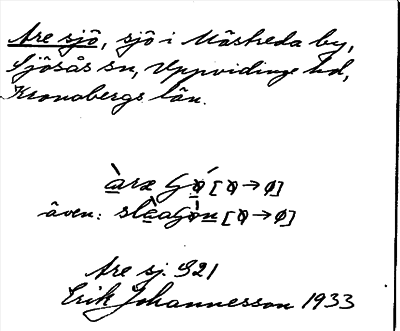 Are sjö, sjö i Måstreda by,
Sjösås sn, Uppvidinge hd,
Kronobergs län.
àræ
även:
Are sj. S21
Erik Johannesson 1933